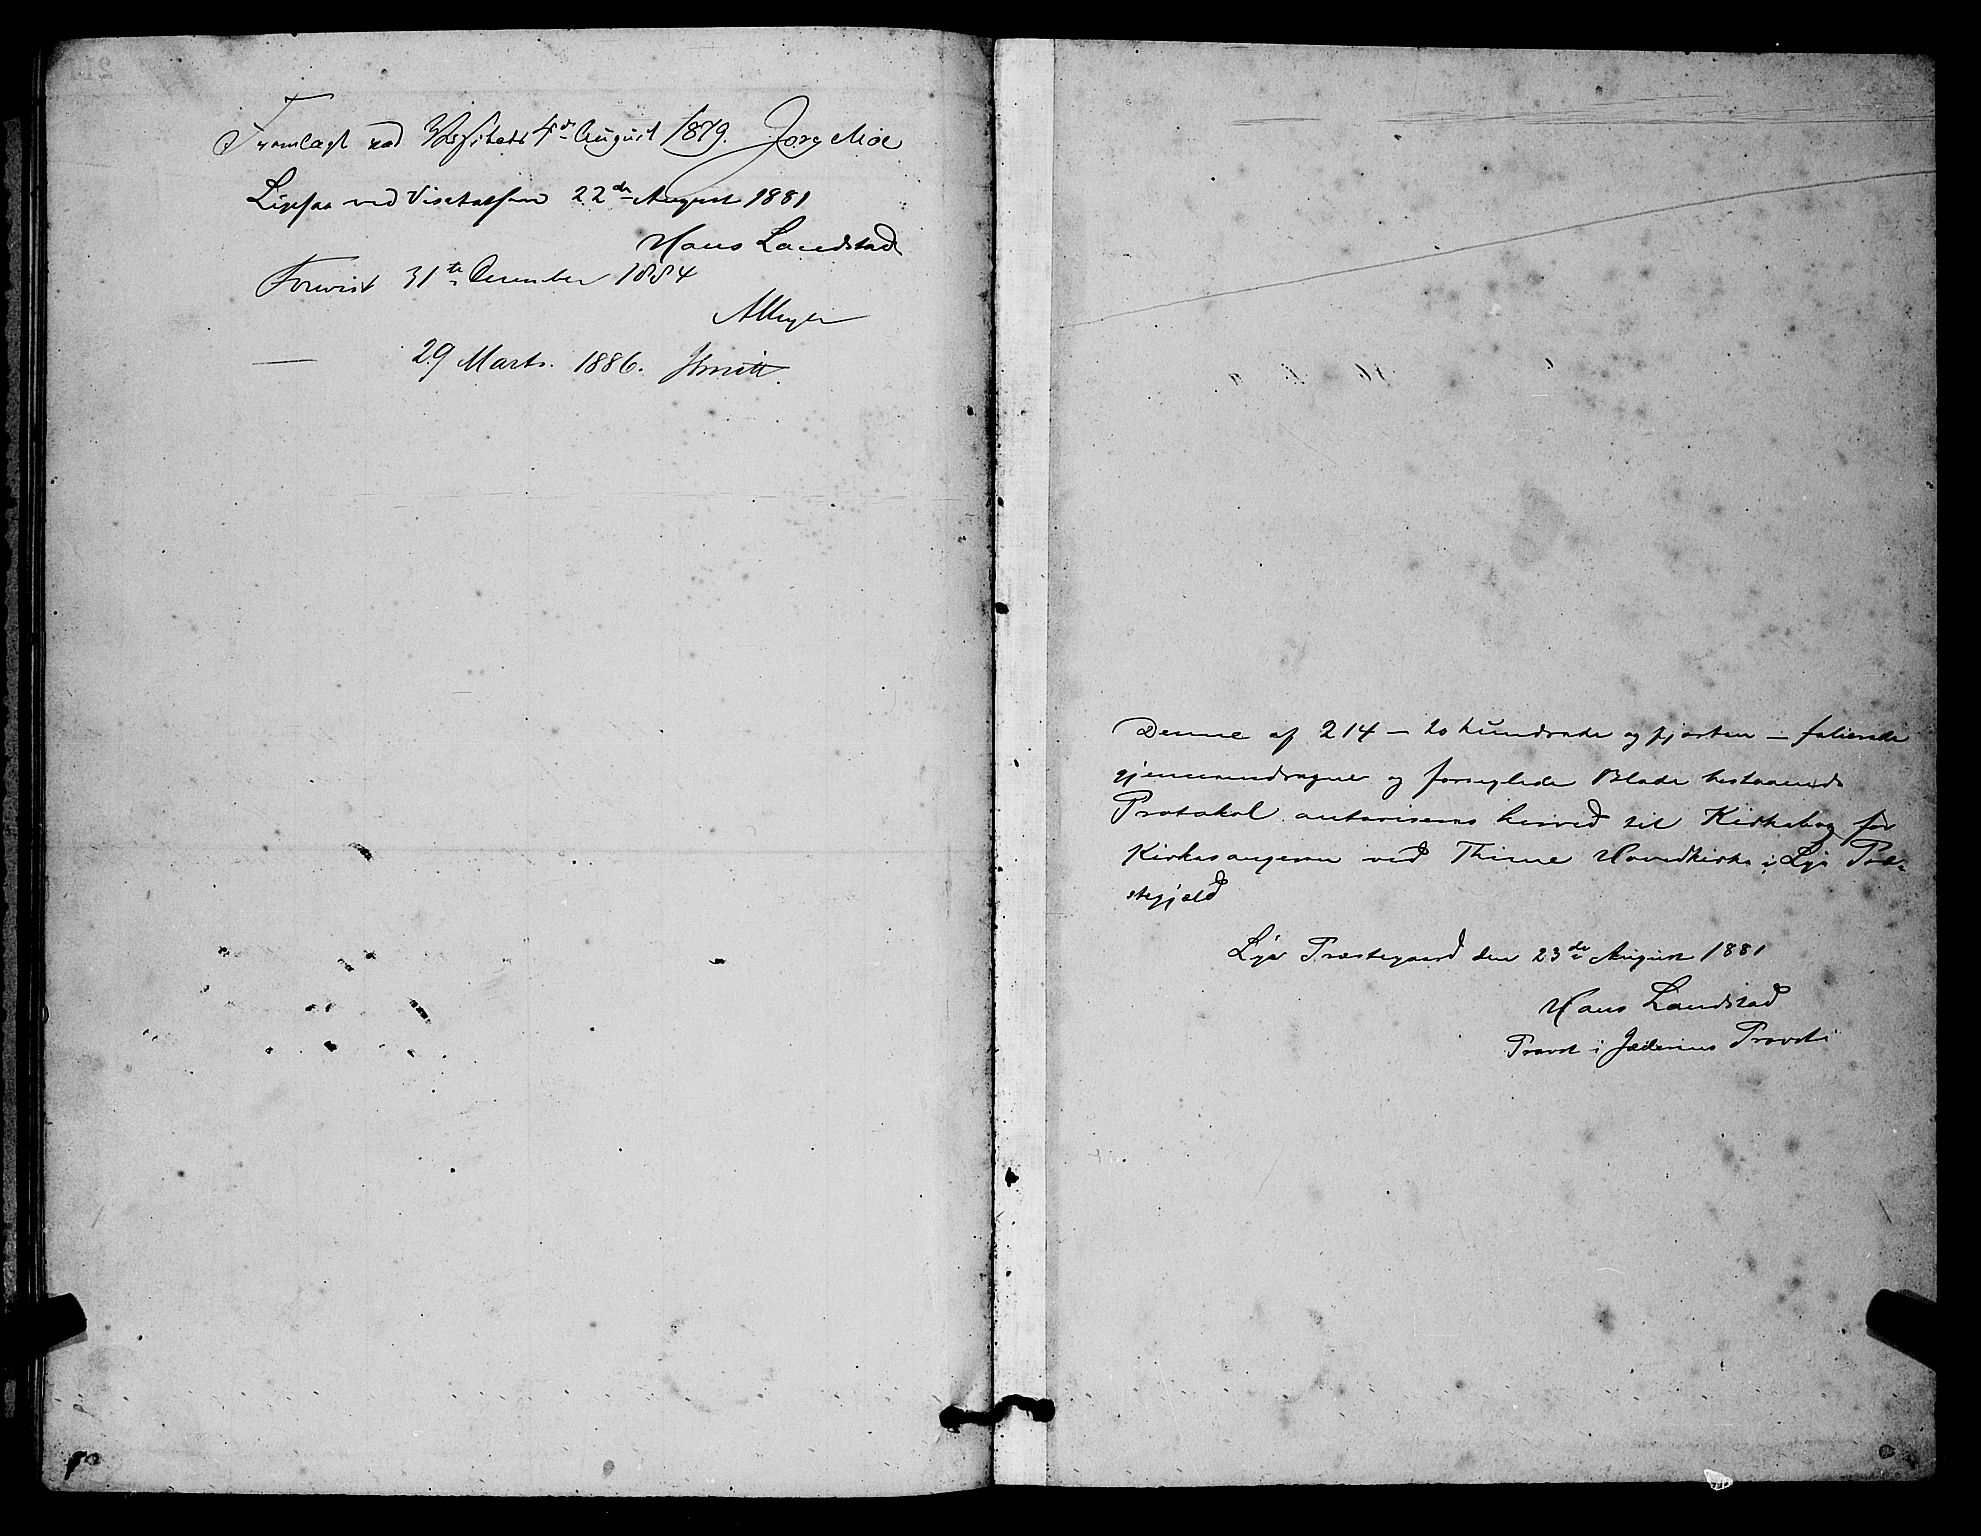 Fremlagt ved Visitats 4de August 1879. Jørg Moe
Ligesaa ved Visitatsen 22de August 1881
Hans Landstad
Forevist 31te December 1884
AMeyer
— 29 Marts. 1886. Smitt.
Denne af 214 – to hundrede og fjorten – folierede
gjennemdragne og forseglede Blade bestaaende
Protokol autoriseres herved til Kirkebog for
Kirkesangeren ved Thime Hovedkirke i Lye Præ-
stegjæld
Lye Præstegaard den 23de August 1881
Hans Landstad
Provst i Jæderens Provsti